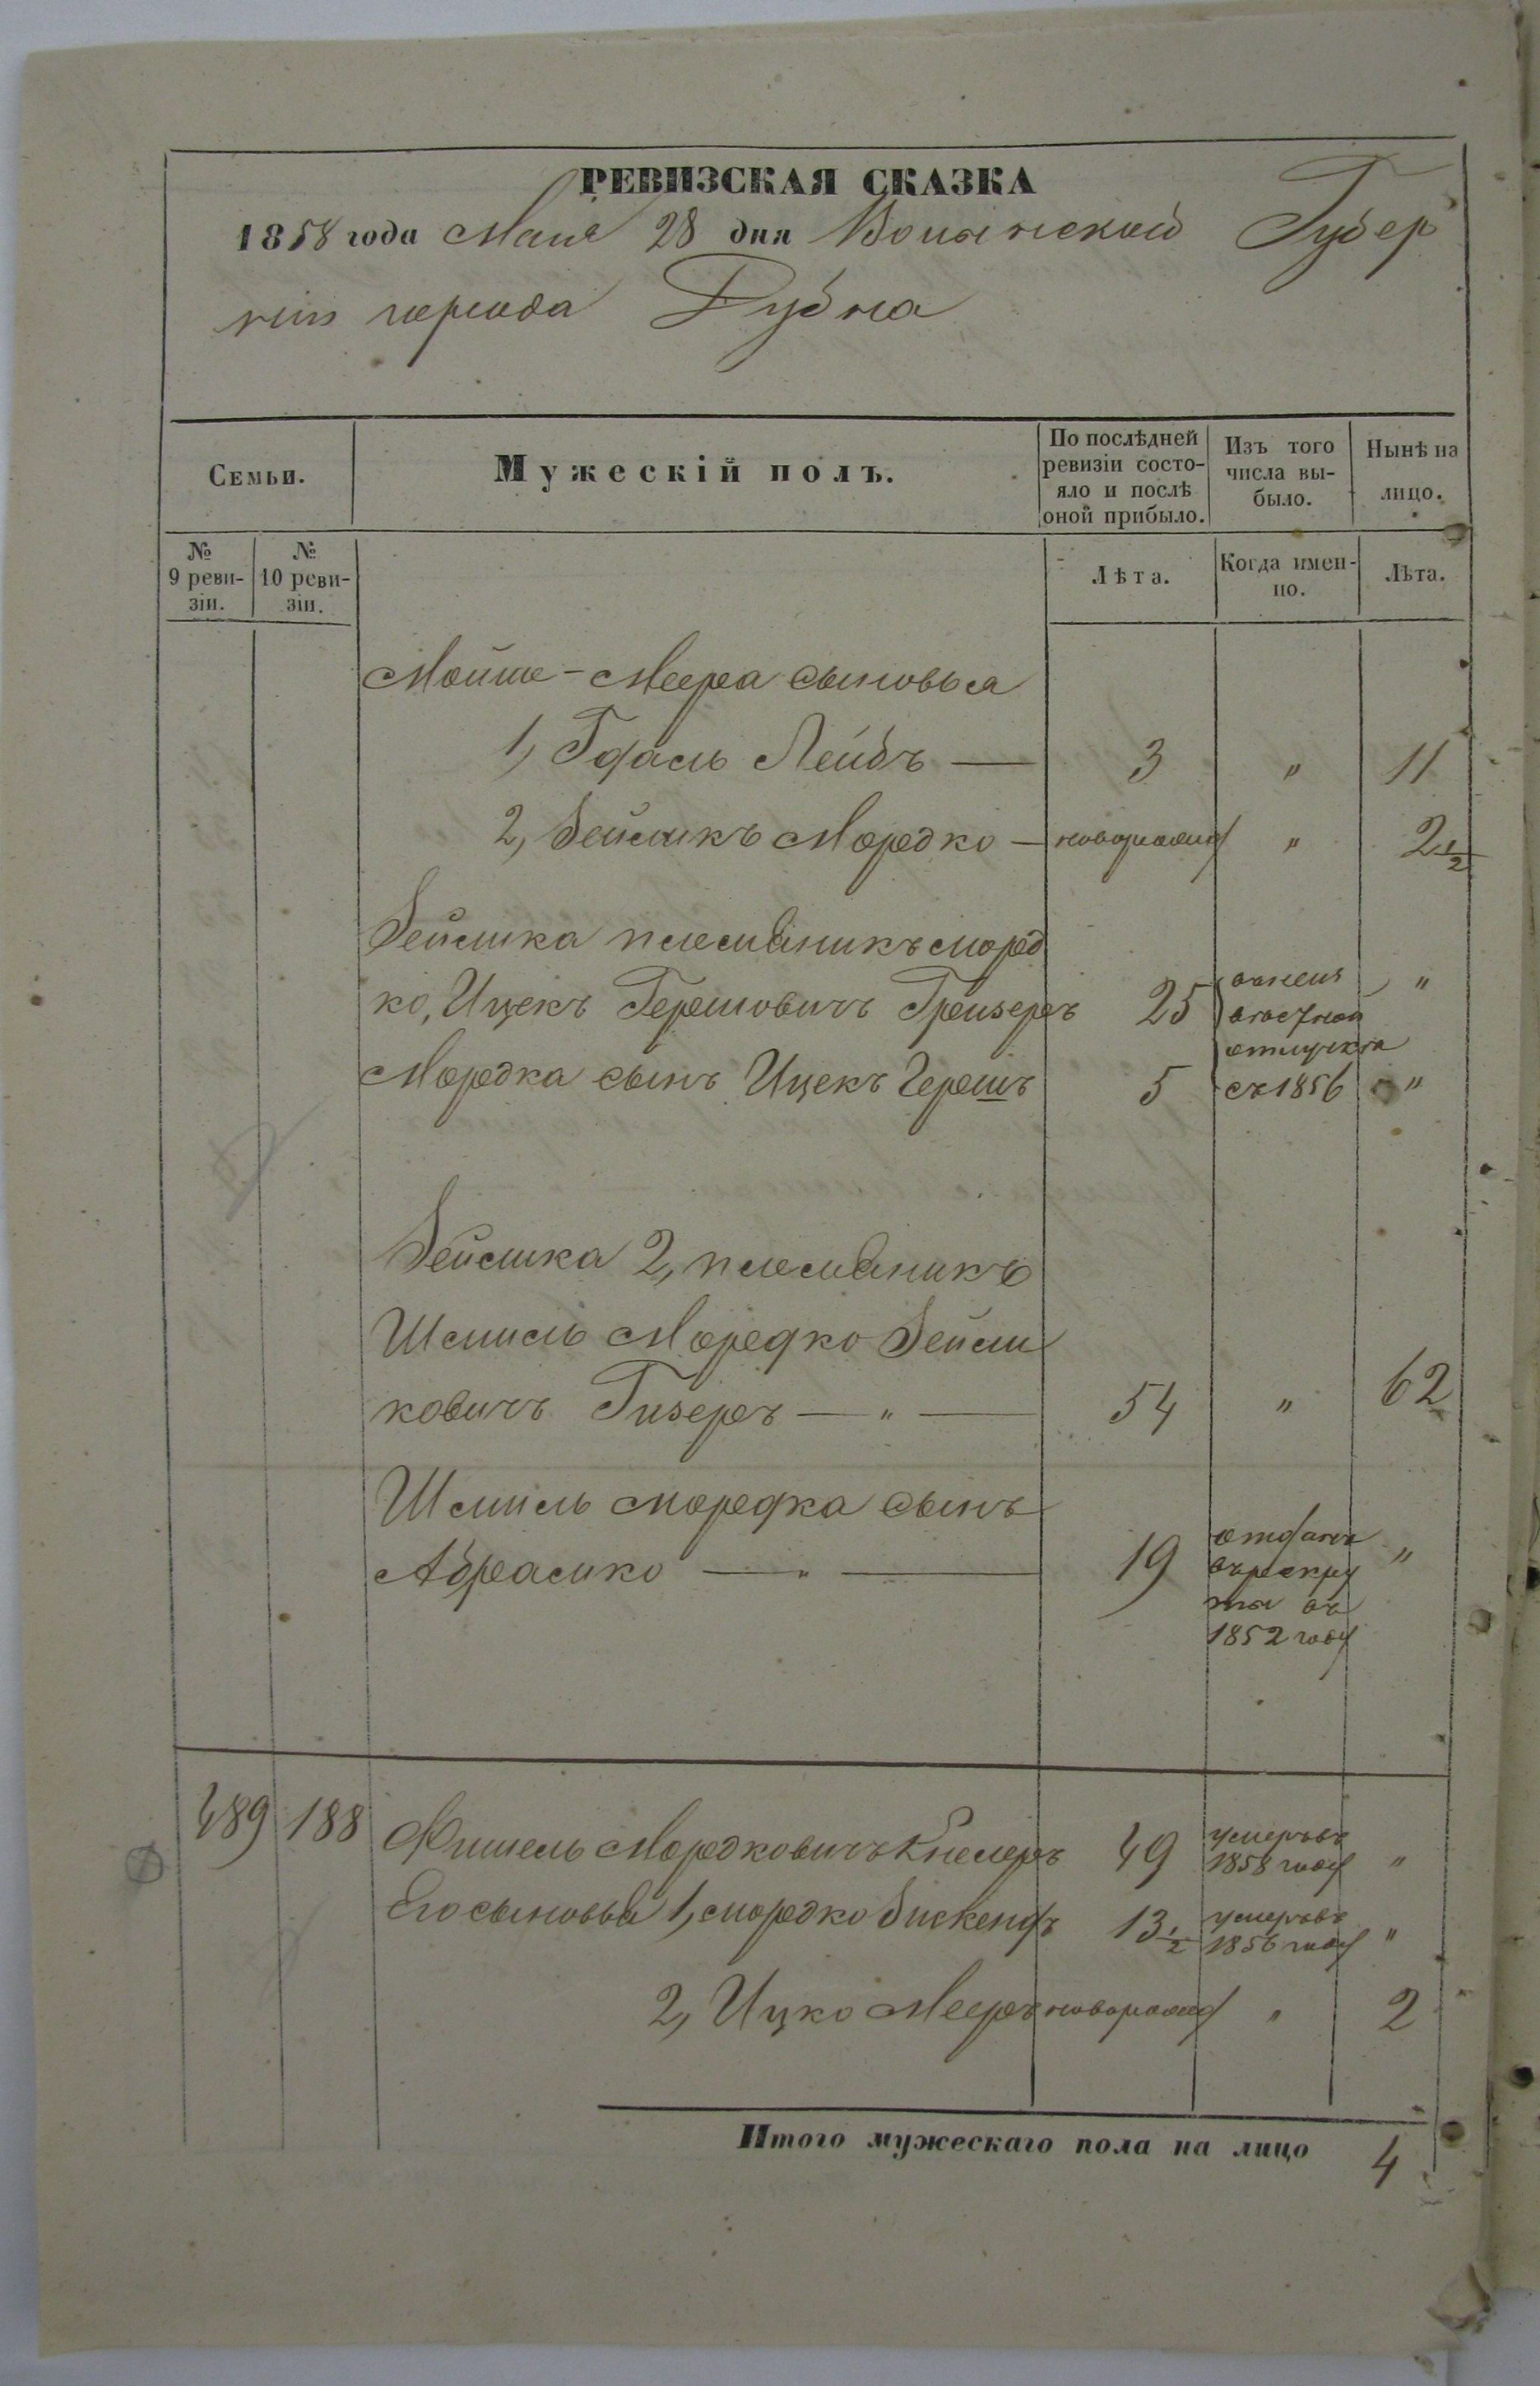 РЕВИЗСКАЯ СКАЗКА
1858 года Мая 28 дня Волынской Губер
нии города Дубна
Семьи.
Мужескій полъ.
По послѣдней ревизіи состо-
яло и послѣ оной прибыло.
Изъ того числа вы-
было.
Нынѣ на лицо.
№ 9 реви-
зіи.
№ 10 реви-
зіи.
Лѣта.
Когда имен-
но.
Лѣта.
Мойше-Меера сыновья
1, Гдаль Лейбъ — 3 " 11
2, Зейликъ Мордко — новорожд " 2 1/2
Зейлика племяникъ Морд
ко, Ицекъ Гершовичъ 25 "
Мордка сынъ Ицекъ Гершъ 5 "
безъ
отлучкѣ
съ 1856
Зейлика 2, племяникъ
Шмиль Мордко Зейли
ковичъ Гизеръ — " — 54 " 62
Шмиль Мордка сынъ
Абрамко — " — 19 "
отданъ
въ рекру
ты въ
1852 году
489 188 Фишель Мордковичъ 49 умеръ въ 1858 году "
Его сыновья 1, Мордко 13 1/2 умеръ въ 1856 году "
2, Ицко Мееръ новорожд " 2
Итого мужескаго пола на лицо 4